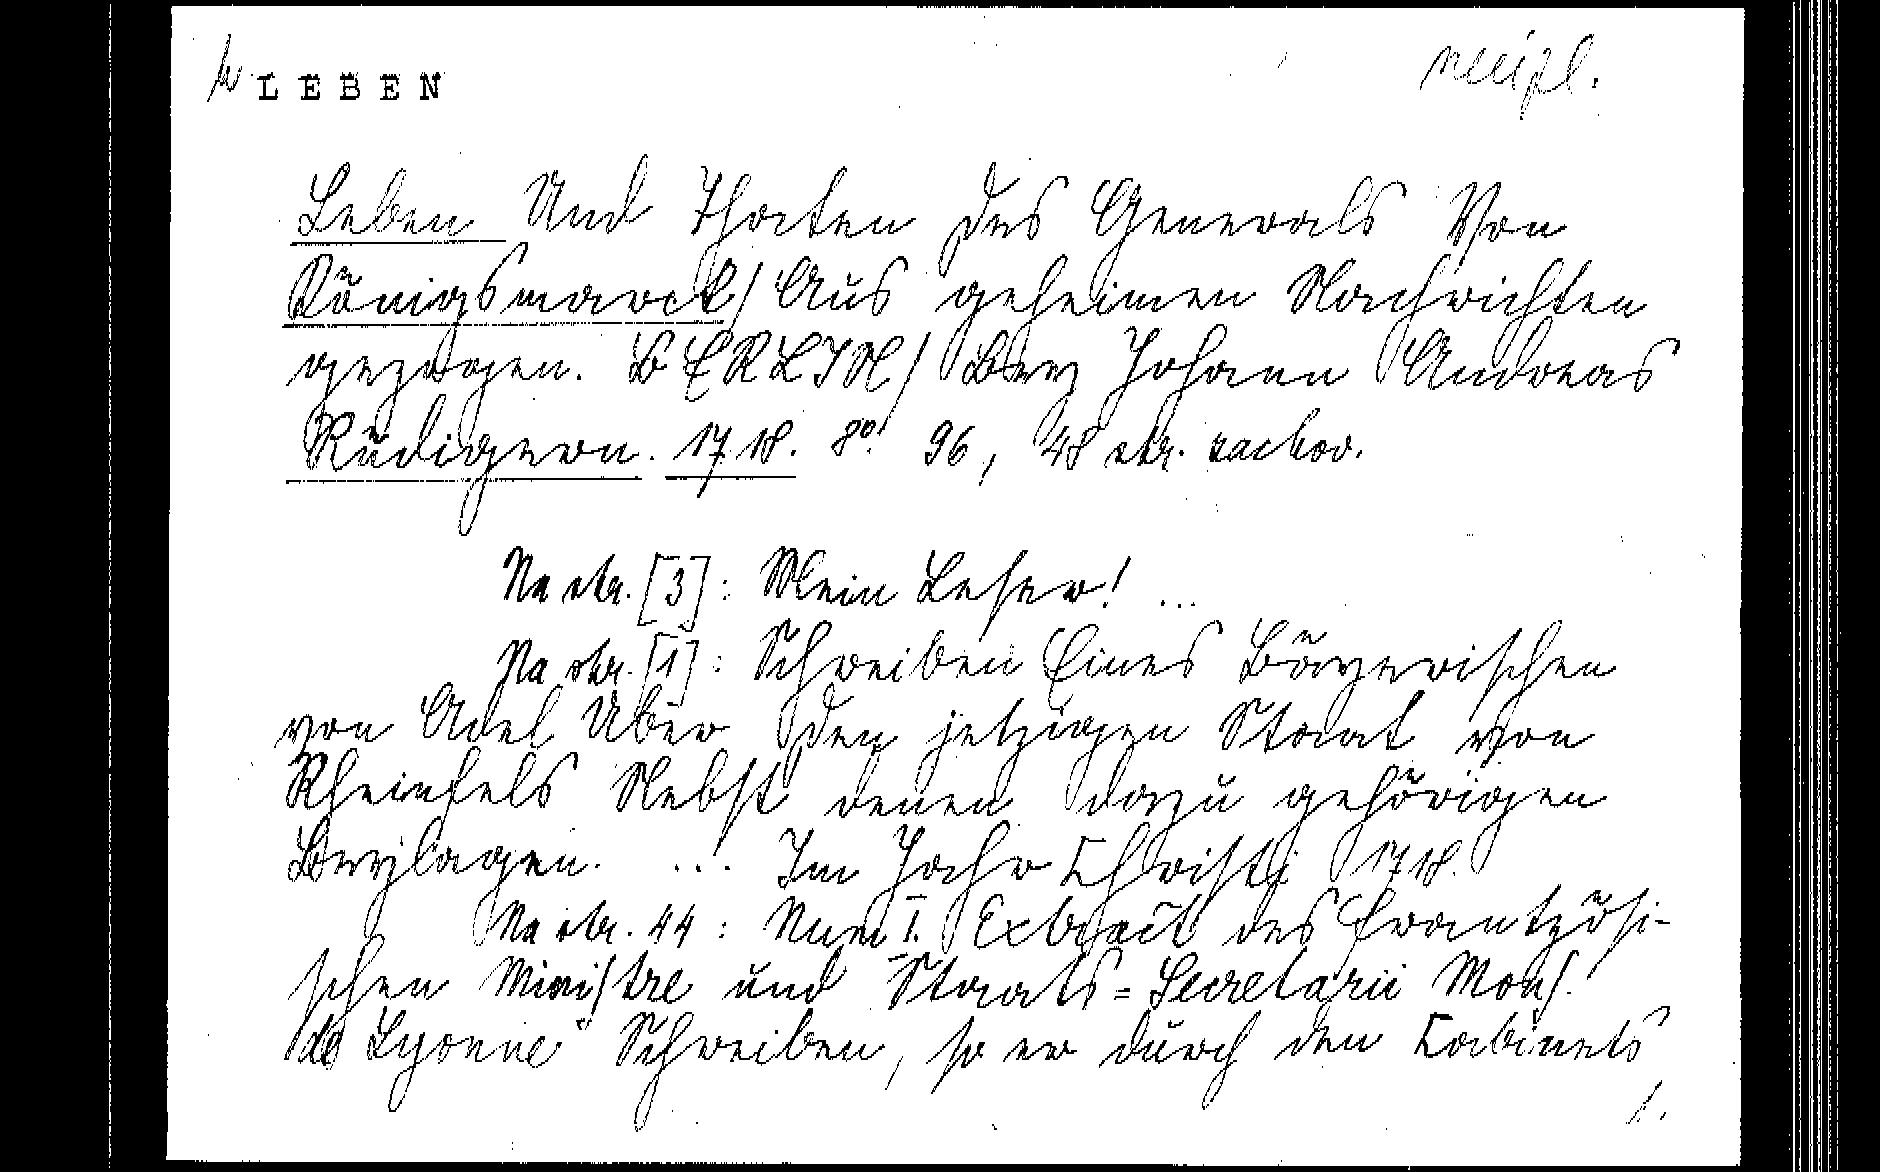 LEBEN
Leben Und Thaten des Generals Von
Königsmarck/ Aus geheimen Nachrichten
gezogen. BERLIN/ Bey Johann Andreas
Rüdigern. 1718. 8°. 96, 48 str. zachov.
Na str. [3]: Mein Leser! ...
Na str. [1]: Schreiben Eines Bäyerischen
von Adel Über den jetzigen Staat von
Rheinfels Nebst denen dazu gehörigen
Beylagen. ... Im Jahr Christi 1718.
Na str. 44: Num I. Extract des Frantzösi-
schen Ministre und Staats-Secretarii Mons.
de Lyonne Schreiben, so er durch den Cabinets
1.